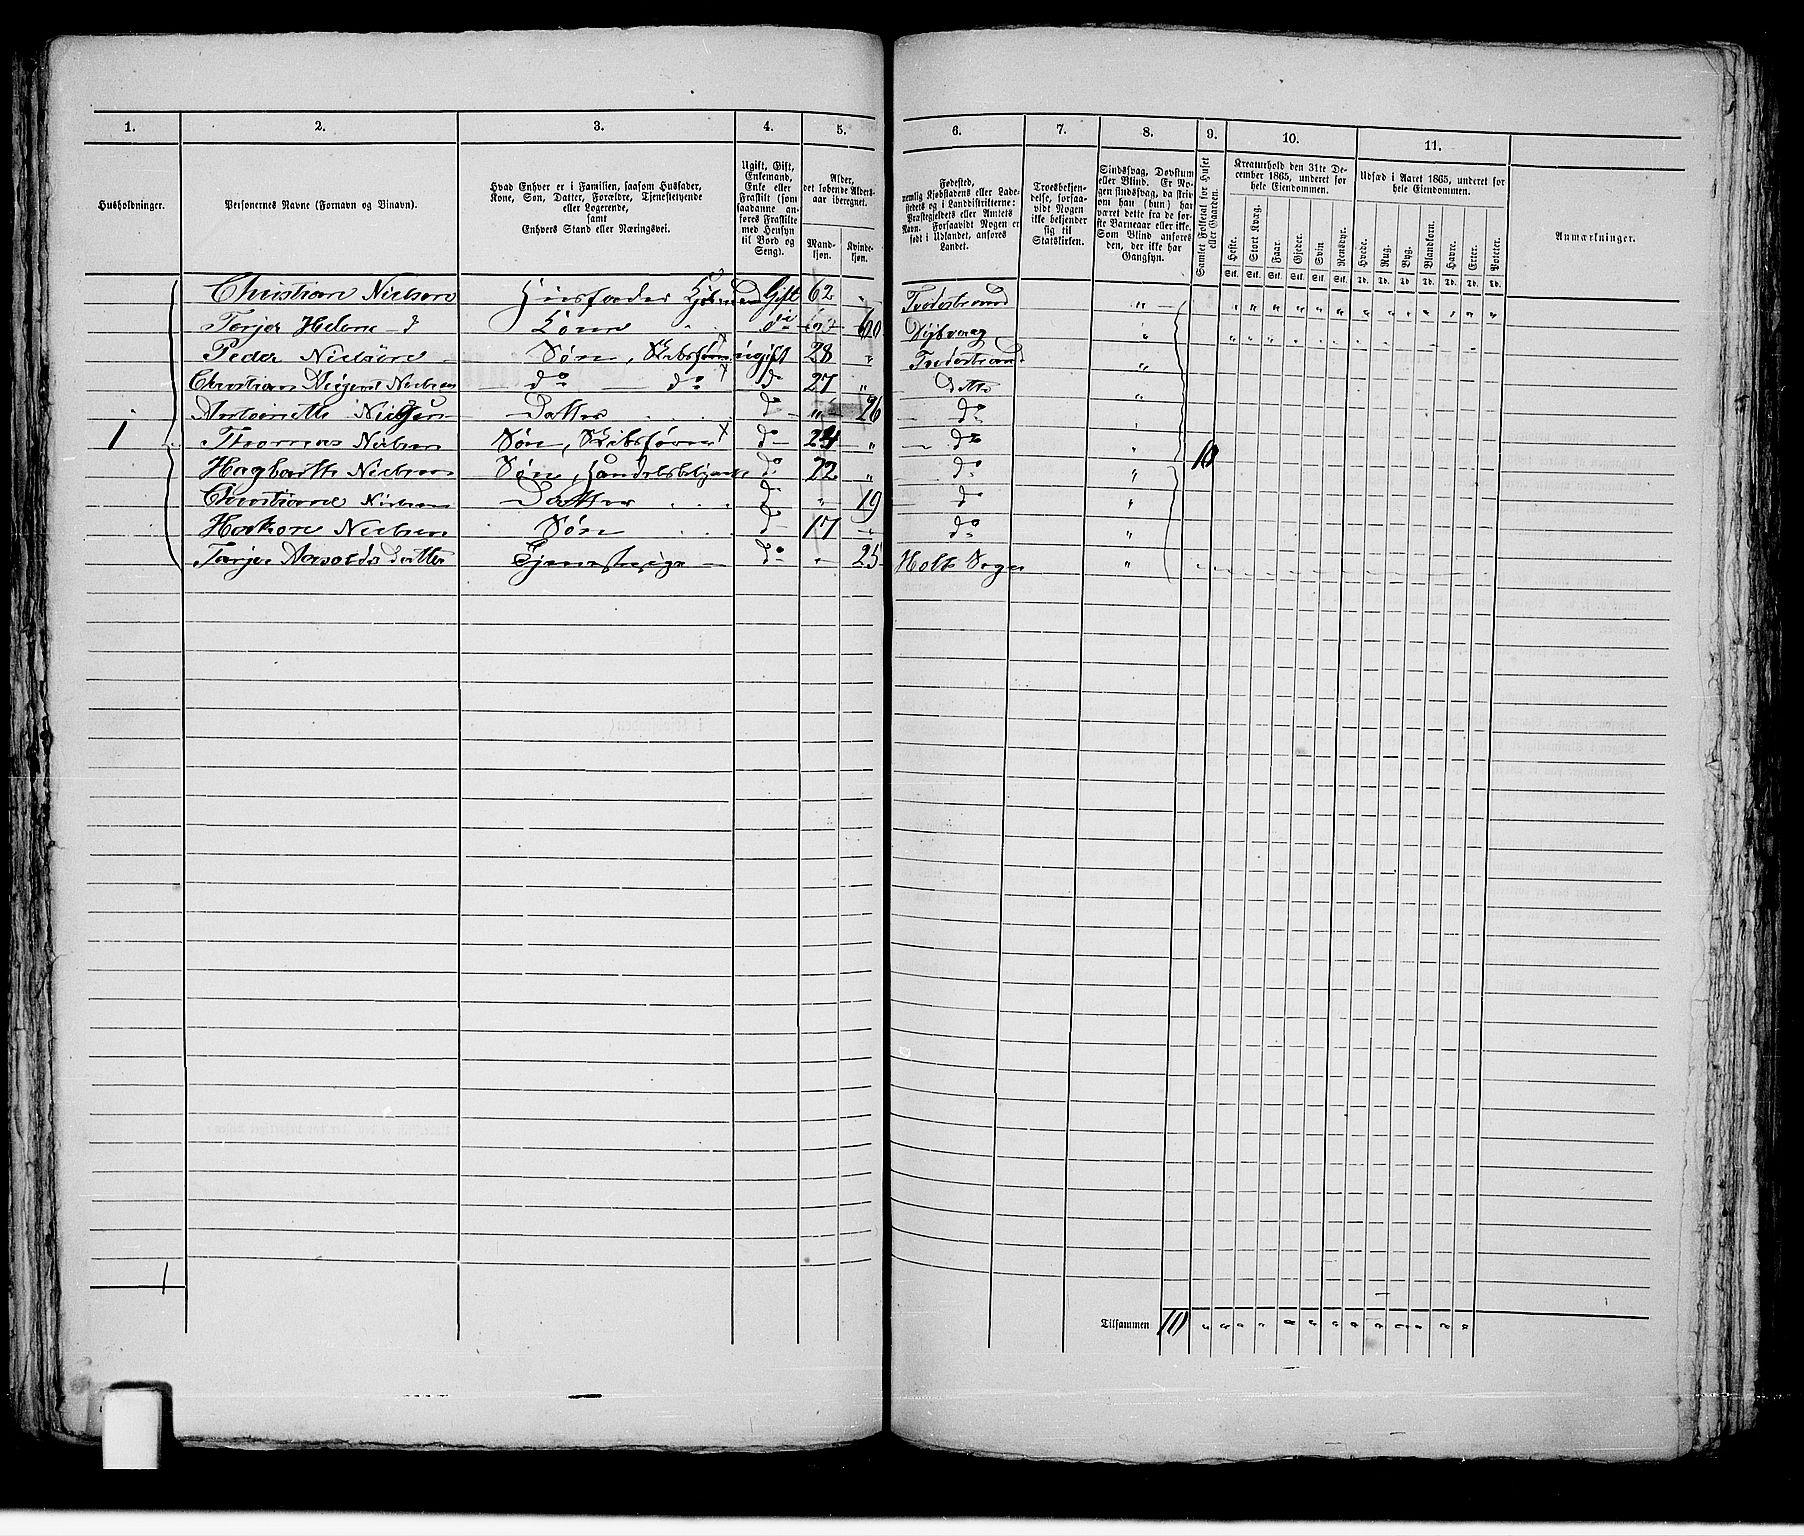 1. 2. 3. 4. 5. 6. 7. 8. 9. 10. 11.
Husholdninger.
Personernes Navne (Fornavn og Tilnavn).
Hvad Enhver er i Familien, saasom Husfader,
Kone, Søn, Datter, Forældre, Tjenestetyende
eller Logerende,
samt
Enhvers Stand eller Næringsvei.
Ugift, Gift,
Enkemand,
Enke eller
Fraskilt (som
saadanne an-
føres Fraskilte
med Hensyn
til Bord og
Seng).
Alder,
det løbende Alders-
aar iberegnet.
Mand-
kjøn.
Kvinde-
kjøn.
Fødested,
nemlig Kjøbstadens eller Lade-
stedets og i Landdistrikterne:
Præstegjeldets eller Amtets
Navn. Forsaavidt Nogen er
født i Udlandet, anføres
Landet.
Troesbekjen-
delse, forsaa-
vidt Nogen
ikke bekjender
sig til
Statskirken.
Sindssvag, Døvstum
eller Blind. Er No-
gen sindssvag, da skri-
ves om han (hun) har
været dette fra de før-
ste Barneaar eller ikke.
Som Blind anføres
den, der ikke har
Gangsyn.
Samlet Folketal for Huset
eller Gaarden.
Kreaturhold den 31te De-
cember 1865, underet for
hele Eiendommen.
Heste. Stort Kvæg. Faar. Gjeder. Svin. Rensdyr.
Stk. Stk. Stk. Stk. Stk. Stk.
Udsæd i Aaret 1865, underet for
hele Eiendommen.
Hvede. Rug. Byg. Blandkorn. Havre. Erter. Poteter.
Td. Td. Td. Td. Td. Td. Td.
Anmærkninger.
Christian Nielsen Huusfader Gift 62 Tvedestrand
Terjer Helene d Kone do 60 Dybvaag
Peder Nielsen Søn, Skibsfører ugift 28 Tvedestrand
Christian Nielsen do do do 27 Ditto
Antoinette Nielsen Datter do 26 do
1 Thomas Nielsen Søn, Skibsfører do 24 do 10
Hagbarth Nielsen Søn, Handelsbetjent do 22 do
Christiane Nielsen Datter do 19 do
Haakon Nielsen Søn do 17 do
Terjer Tjenestepige do 25 Holt Sogn
1
Tilsammen 10